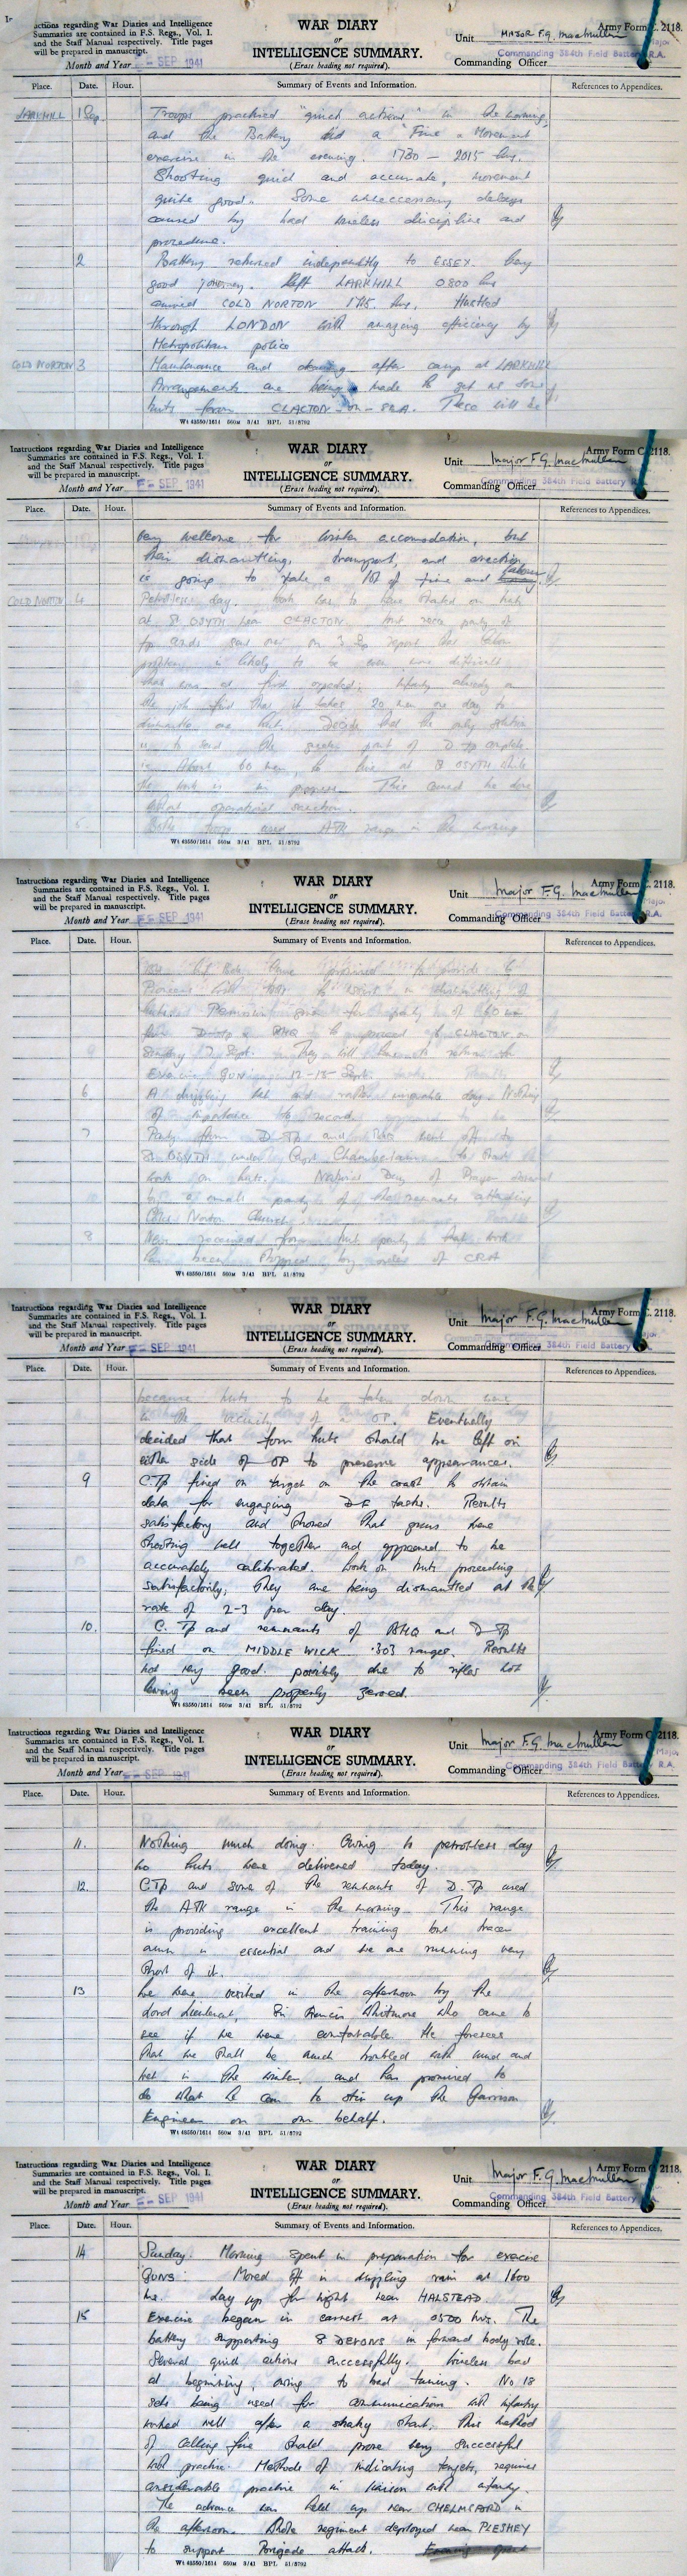 WAR DIARY
or
INTELLIGENCE SUMMARY.
(Erase heading not required).
actions regarding War Diaries and Intelligence
are contained in F.S. Regs., Vol. I.
and the Staff Manual respectively. Title pages
will be prepared in manuscript.
Month and Year SEP 1941
Army Form C. 2118.
Unit MAJOR F.G. MacMullen
Commanding Officer Commanding 384th Field Battery R.A.
Place. Date. Hour. Summary of Events and Information. References to Appendices.
LARKHILL 1 Sep. Troops practised "quick actions" in the morning,
and the Battery did a "Fire & Movement
exercise in the evening. 1730 - 2015 hrs.
Shooting quick and accurate, movement
quite good. Some unneccessary delays
caused by bad wireless discipline and
procedure.
2 Battery returned independtly to ESSEX. Very
good journey. Left LARKHILL 0800 hrs
arrived COLD NORTON 1715 hrs. Hustled
through LONDON with amazing efficiency by
Metropolitan police
COLD NORTON 3 Maintenance and cleaning after camp at LARKHILL
Arrangements are being made to get us some
huts from CLACTON-on-SEA. These will be
Wt 43550/1614 560M 3/41 BPL 51/5792
Instructions regarding War Diaries and Intelligence
Summaries are contained in F.S. Regs., Vol. I.
and the Staff Manual respectively. Title pages
will be prepared in manuscript.
Month and Year SEP 1941
WAR DIARY
or
INTELLIGENCE SUMMARY.
(Erase heading not required).
Army Form C. 2118.
Unit Major F.G. MacMullen
Commanding Officer Commanding 384th Field Battery R.A.
Place. Date. Hour. Summary of Events and Information. References to Appendices.
very welcome for winter accomodation, but
their dismantling, transport, and erection
is going to take a lot of time and labour.
COLD NORTON 4 Petrolless day. Work was to have started on huts
at St OSYTH near CLACTON but recce party of
sent over on 3 Sep report that labour
problem is likely to be even more difficult
than was at first expected; Infantry already on
the job find that it takes 20 men one day to
dismantle one hut. Decide that the only solution
is to send the greater part of D Tp complete
ie. About 60 men, to live at St OSYTH while
the work is in progress. This cannot be done
without operational sanction.
5. Both troops used ATk range in the morning
Wt 43550/1614 560M 3/41 BPL 51/5792
Instructions regarding War Diaries and Intelligence
Summaries are contained in F.S. Regs., Vol. I.
and the Staff Manual respectively. Title pages
will be prepared in manuscript.
Month and Year SEP 1941
WAR DIARY
or
INTELLIGENCE SUMMARY.
(Erase heading not required).
Army Form C. 2118.
Unit Major F.G. MacMullen
Commanding Officer Commanding 384th Field Battery R.A.
Place. Date. Hour. Summary of Events and Information. References to Appendices.
to provide 6
Pioneers with to assist in dismantling of
huts. Permission given for party of 60 men
from D Tp & BHQ to proceed to CLACTON on
Sunday 7 Sept. They will have to return for
Exercise GUNS 12-15 Sept.
6 A drizzling wet and rather miserable day. Nothing
of importance to record.
7 Party from D Tp and BHQ went off to
St OSYTH under Capt Chamberlain to start
work on huts. National Day of Prayer
by a small party of the remnants attending
Cold Norton Church.
8 News received from hut party that work
has been stopped by order of CRA
Wt 43550/1614 560M 3/41 BPL 51/5792
Instructions regarding War Diaries and Intelligence
Summaries are contained in F.S. Regs., Vol. I.
and the Staff Manual respectively. Title pages
will be prepared in manuscript.
Month and Year SEP 1941
WAR DIARY
or
INTELLIGENCE SUMMARY.
(Erase heading not required).
Army Form C. 2118.
Unit Major F.G. MacMullen
Commanding Officer Commanding 384th Field Battery R.A.
Place. Date. Hour. Summary of Events and Information. References to Appendices.
because huts to be taken down were
in the vicinity of a OP. Eventually
decided that four huts should be left on
either side of OP to preserve appearances.
9 C Tp fired on target on the coast to obtain
data for engaging DF tasks. Results
satisfactory and showed that guns were
shooting well together and appeared to be
accurately calibrated. Work on huts proceeding
satisfactorily; they are being dismantled at the
rate of 2-3 per day.
10. C. Tp and remnants of BHQ and D Tp
fired on MIDDLE WICK .303 ranges. Results
not very good. possibly due to rifles not
having been properly zeroed.
Wt 43550/1614 560M 3/41 BPL 51/5792
Instructions regarding War Diaries and Intelligence
Summaries are contained in F.S. Regs., Vol. I.
and the Staff Manual respectively. Title pages
will be prepared in manuscript.
Month and Year SEP 1941
WAR DIARY
or
INTELLIGENCE SUMMARY.
(Erase heading not required).
Army Form C. 2118.
Unit Major F.G. MacMullen
Commanding Officer Commanding 384th Field Battery R.A.
Place. Date. Hour. Summary of Events and Information. References to Appendices.
11. Nothing much doing. Owing to petrolless day
no huts were delivered today.
12. C Tp and some of the remnants of D. Tp used
the ATk range in the morning. This range
is providing excellent training but tracer
ammn is essential and we are running very
short of it.
13 We were visited in the afternoon by the
Lord Lieutenant, Sir Francis Whitmore who came to
see if we were comfortable. He foresees
that we shall be much troubled with wind and
wet in the winter, and has promised to
do what he can to stir up the Garrison
Engineer on our behalf.
Wt 43550/1614 560M 3/41 BPL 51/5792
Instructions regarding War Diaries and Intelligence
Summaries are contained in F.S. Regs., Vol. I.
and the Staff Manual respectively. Title pages
will be prepared in manuscript.
Month and Year SEP 1941
WAR DIARY
or
INTELLIGENCE SUMMARY.
(Erase heading not required).
Army Form C. 2118.
Unit Major F.G. MacMullen
Commanding Officer Commanding 384th Field Battery R.A.
Place. Date. Hour. Summary of Events and Information. References to Appendices.
14 Sunday. Morning spent in preparation for exercise
GUNS. Moved off in drizzling rain at 1600
hrs. Lay up for night near HALSTEAD.
15 Exercise began in earnest at 0500 hrs. The
battery supporting 8 DEVONS in forward body role.
Several quick actions successfully. Wireless bad
at beginning, owing to bad tuning. No 18
sets being used for communication with infantry
worked well after a shaky start. This method
of calling fire should prove very successful
with practice. Methods of indicating targets, requires
considerable practice in liaison with infantry.
The advance was held up near CHELMSFORD in
the afternoon. Whole regiment deployed near PLESHEY
to support Brigade attack.
Wt 43550/1614 560M 3/41 BPL 51/5792